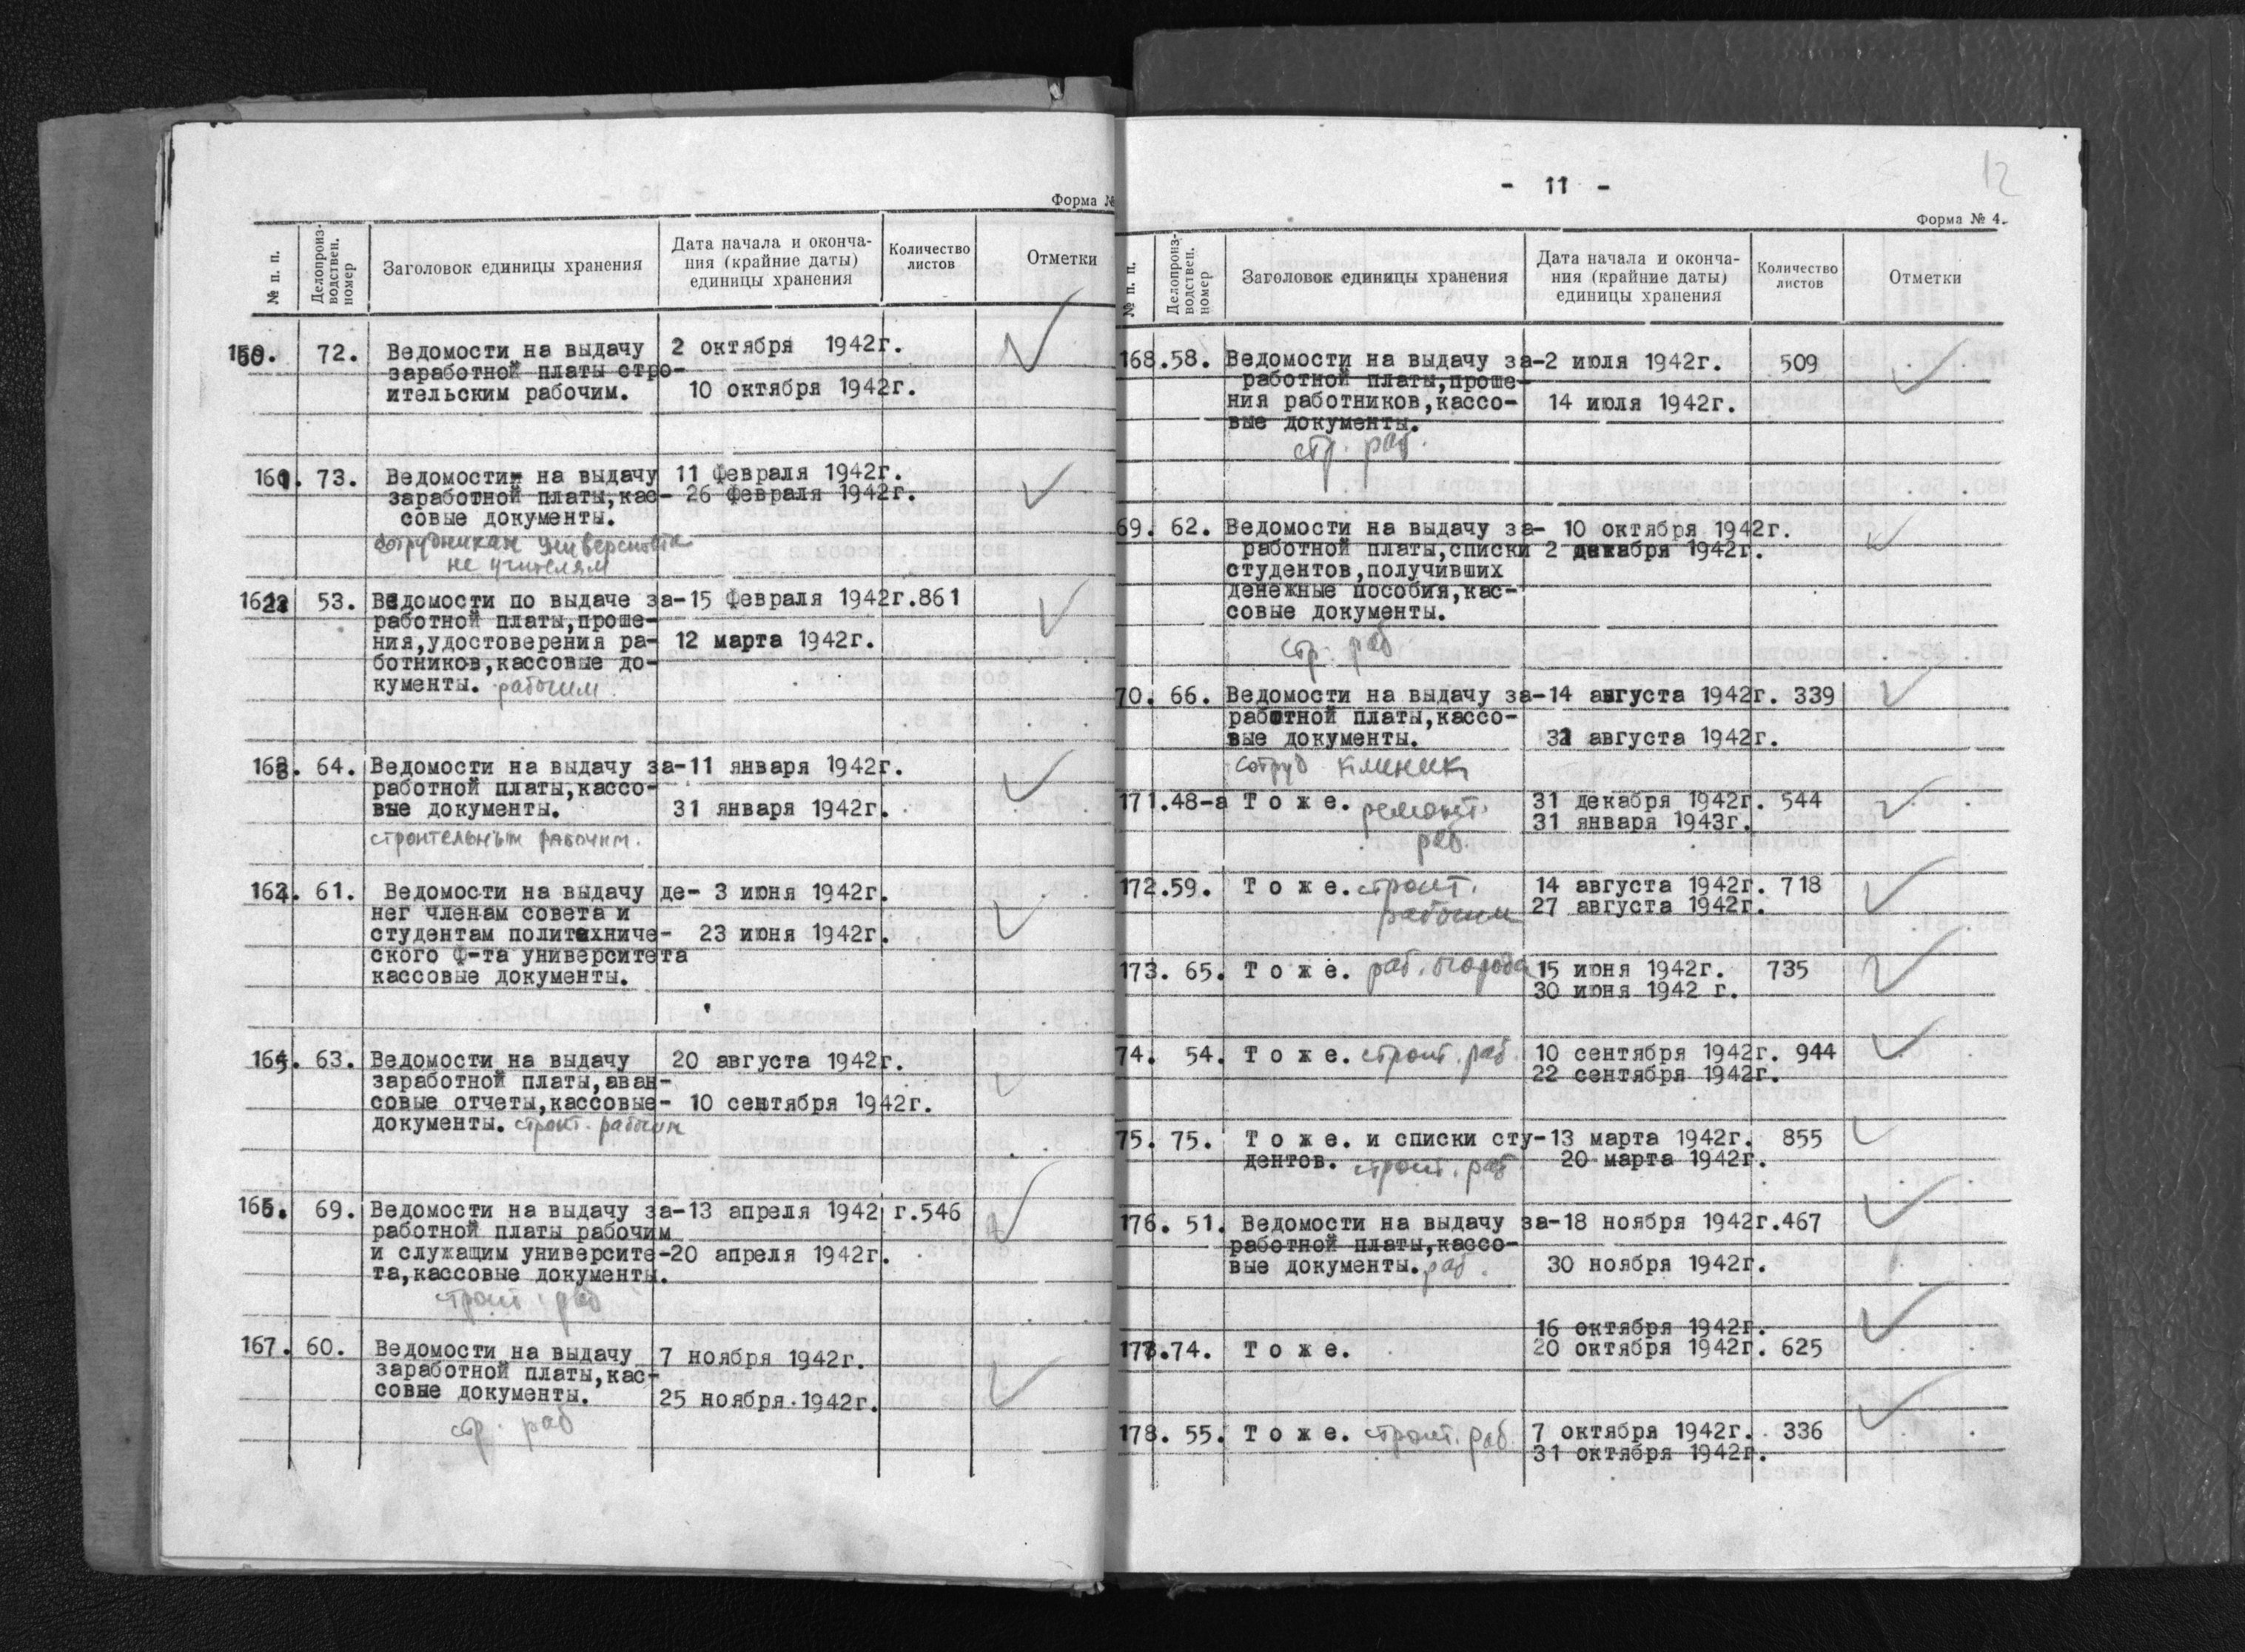 Форма №
№ п. п.
Делопроиз-
водствен.
номер
Заголовок единицы хранения
Дата начала и оконча-
ния (крайние даты)
единицы хранения
Количество
листов
Отметки
72. Ведомости на выдачу 2 октября 1942г.
заработной платы стро-
ительским рабочим. 10 октября 1942г.
161. 73. Ведомости на выдачу 11 февраля 1942г.
заработной платы,кас- 26 февраля 1942г.
совые документы.
сотрудникам университета
не учителям
162. 53. Ведомости по выдаче за-15 февраля 1942г.861
работной платы,проше-
ния,удостоверения ра- 12 марта 1942г.
ботников,кассовые до-
кументы. рабочим
163. 64. Ведомости на выдачу за-11 января 1942г.
работной платы,кассо-
вые документы. 31 января 1942г.
строительным рабочим.
164. 61. Ведомости на выдачу де- 3 июня 1942г.
нег членам совета и
студентам политехниче- 23 июня 1942г.
ского ф-та университета
кассовые документы.
165. 63. Ведомости на выдачу 20 августа 1942г.
заработной платы,аван-
совые отчеты,кассовые- 10 сентября 1942г.
документы. строит. рабочим
166. 69. Ведомости на выдачу за-13 апреля 1942 г.546
работной платы рабочим
и служащим университе-20 апреля 1942г.
та,кассовые документы.
строит. раб
167. 60. Ведомости на выдачу 7 ноября 1942г.
заработной платы,кас-
совые документы. 25 ноября.1942г.
стр. раб
- 11 -
12
Форма № 4.
№ п. п.
Делопроиз-
водствен.
номер
Заголовок единицы хранения
Дата начала и оконча-
ния (крайние даты)
единицы хранения
Количество
листов
Отметки
168.58. Ведомости на выдачу за-2 июля 1942г. 509
работной платы,проше-
ния работников,кассо- 14 июля 1942г.
вые документы.
стр. раб.
69. 62. Ведомости на выдачу за- 10 октября 1942г.
работной платы,списки 2 декабря 1942г.
студентов,получивших
денежные пособия,кас-
совые документы.
стр. раб
70. 66. Ведомости на выдачу за-14 августа 1942г. 339
работной платы,кассо-
вые документы. 31 августа 1942г.
сотруд клиник
171.48-а Т о ж е. ремонт. 31 декабря 1942г. 544
31 января 1943г.
раб.
172.59. Т о ж е. строит. 14 августа 1942г. 718
рабочим 27 августа 1942г.
173. 65. Т о ж е. раб. огорода 15 июня 1942г. 735
30 июня 1942 г.
74. 54. Т о ж е. строит. раб. 10 сентября 1942г. 944
22 сентября 1942г.
75. 75. Т о ж е. и списки сту-13 марта 1942г. 855
дентов. строит. раб 20 марта 1942г.
176. 51. Ведомости на выдачу за-18 ноября 1942г.467
работной платы,кассо-
вые документы. раб. 30 ноября 1942г.
16 октября 1942г.
177.74. Т о ж е. 20 октября 1942г. 625
178. 55. Т о ж е. строит. раб. 7 октября 1942г. 336
31 октября 1942г.